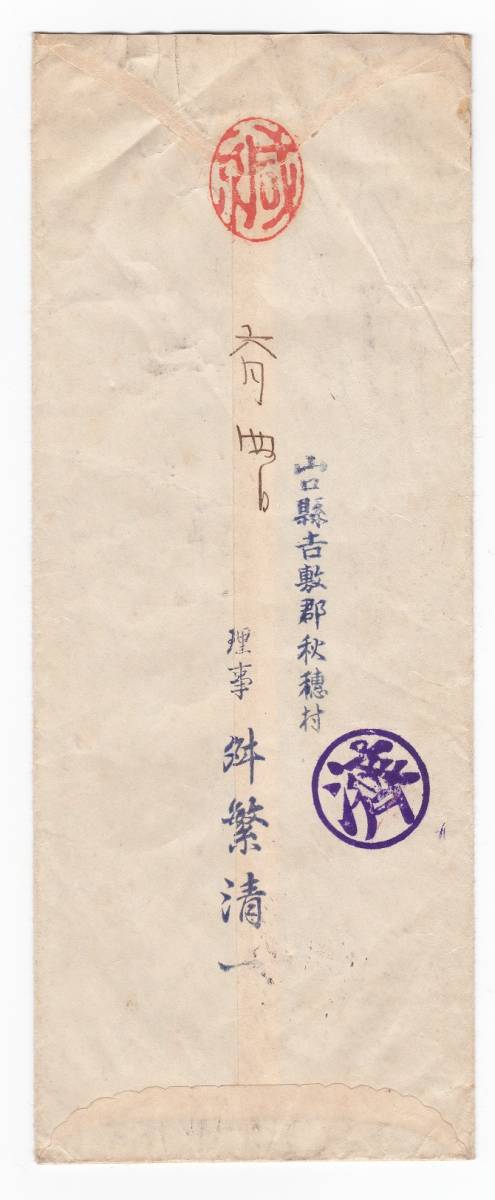 緘
山口縣吉敷郡秋穗村
濟
六月四日
理事 舛繁清一